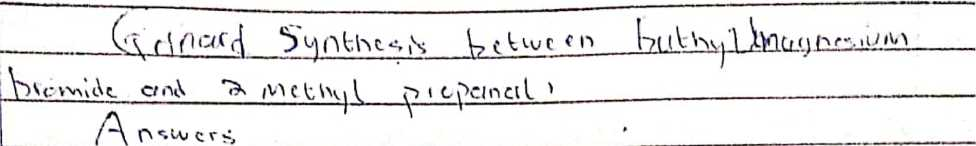 Grignard Synthesis between buthyl magnesium
bromide and 2 methyl propanal,
Answers